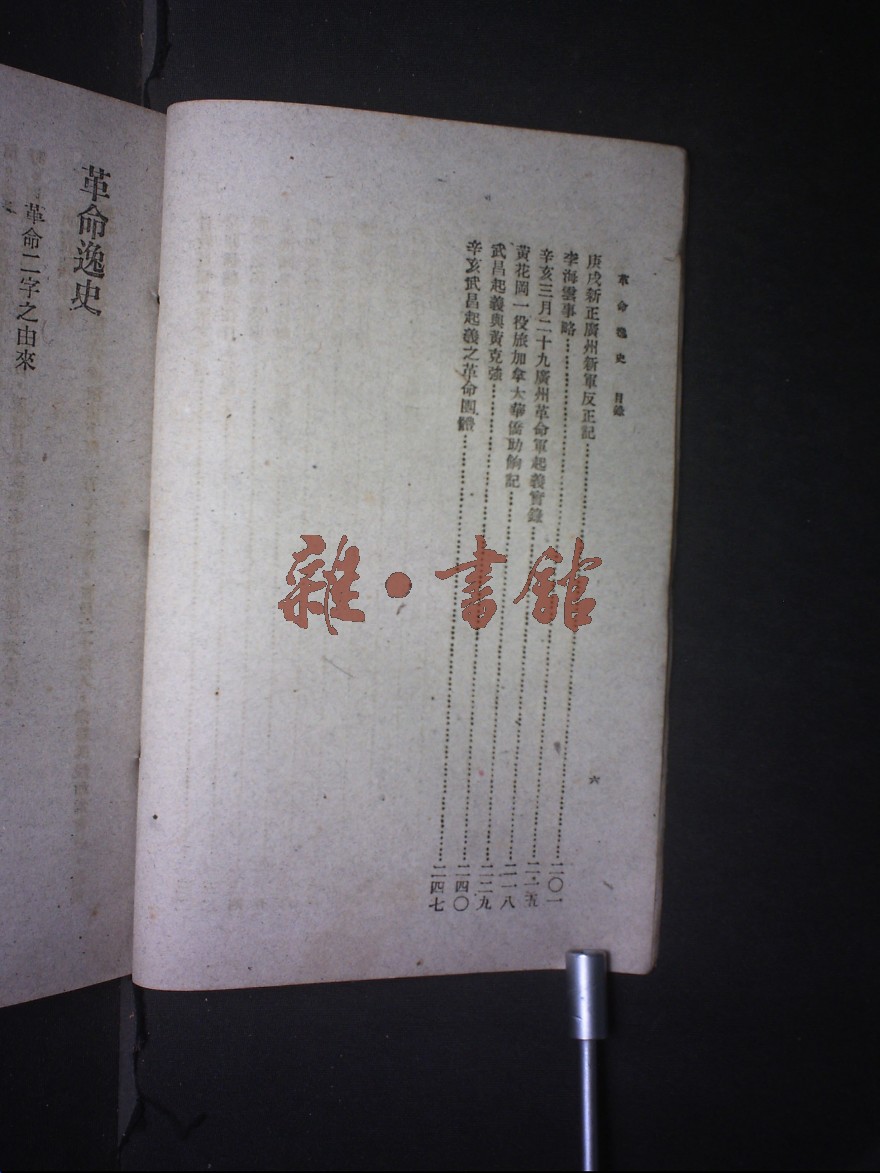 革命逸史 目錄 六
庚戌新正廣州新軍反正記……二〇一
李海雲事略……二一五
辛亥三月二十九廣州革命軍起義實錄……二一八
黃花岡一役旅加拿大華僑助餉記……二二九
武昌起義與黃克強……二四〇
辛亥武昌起義之革命團體……二四七
革命逸史
革命二字之由來
雜·書館